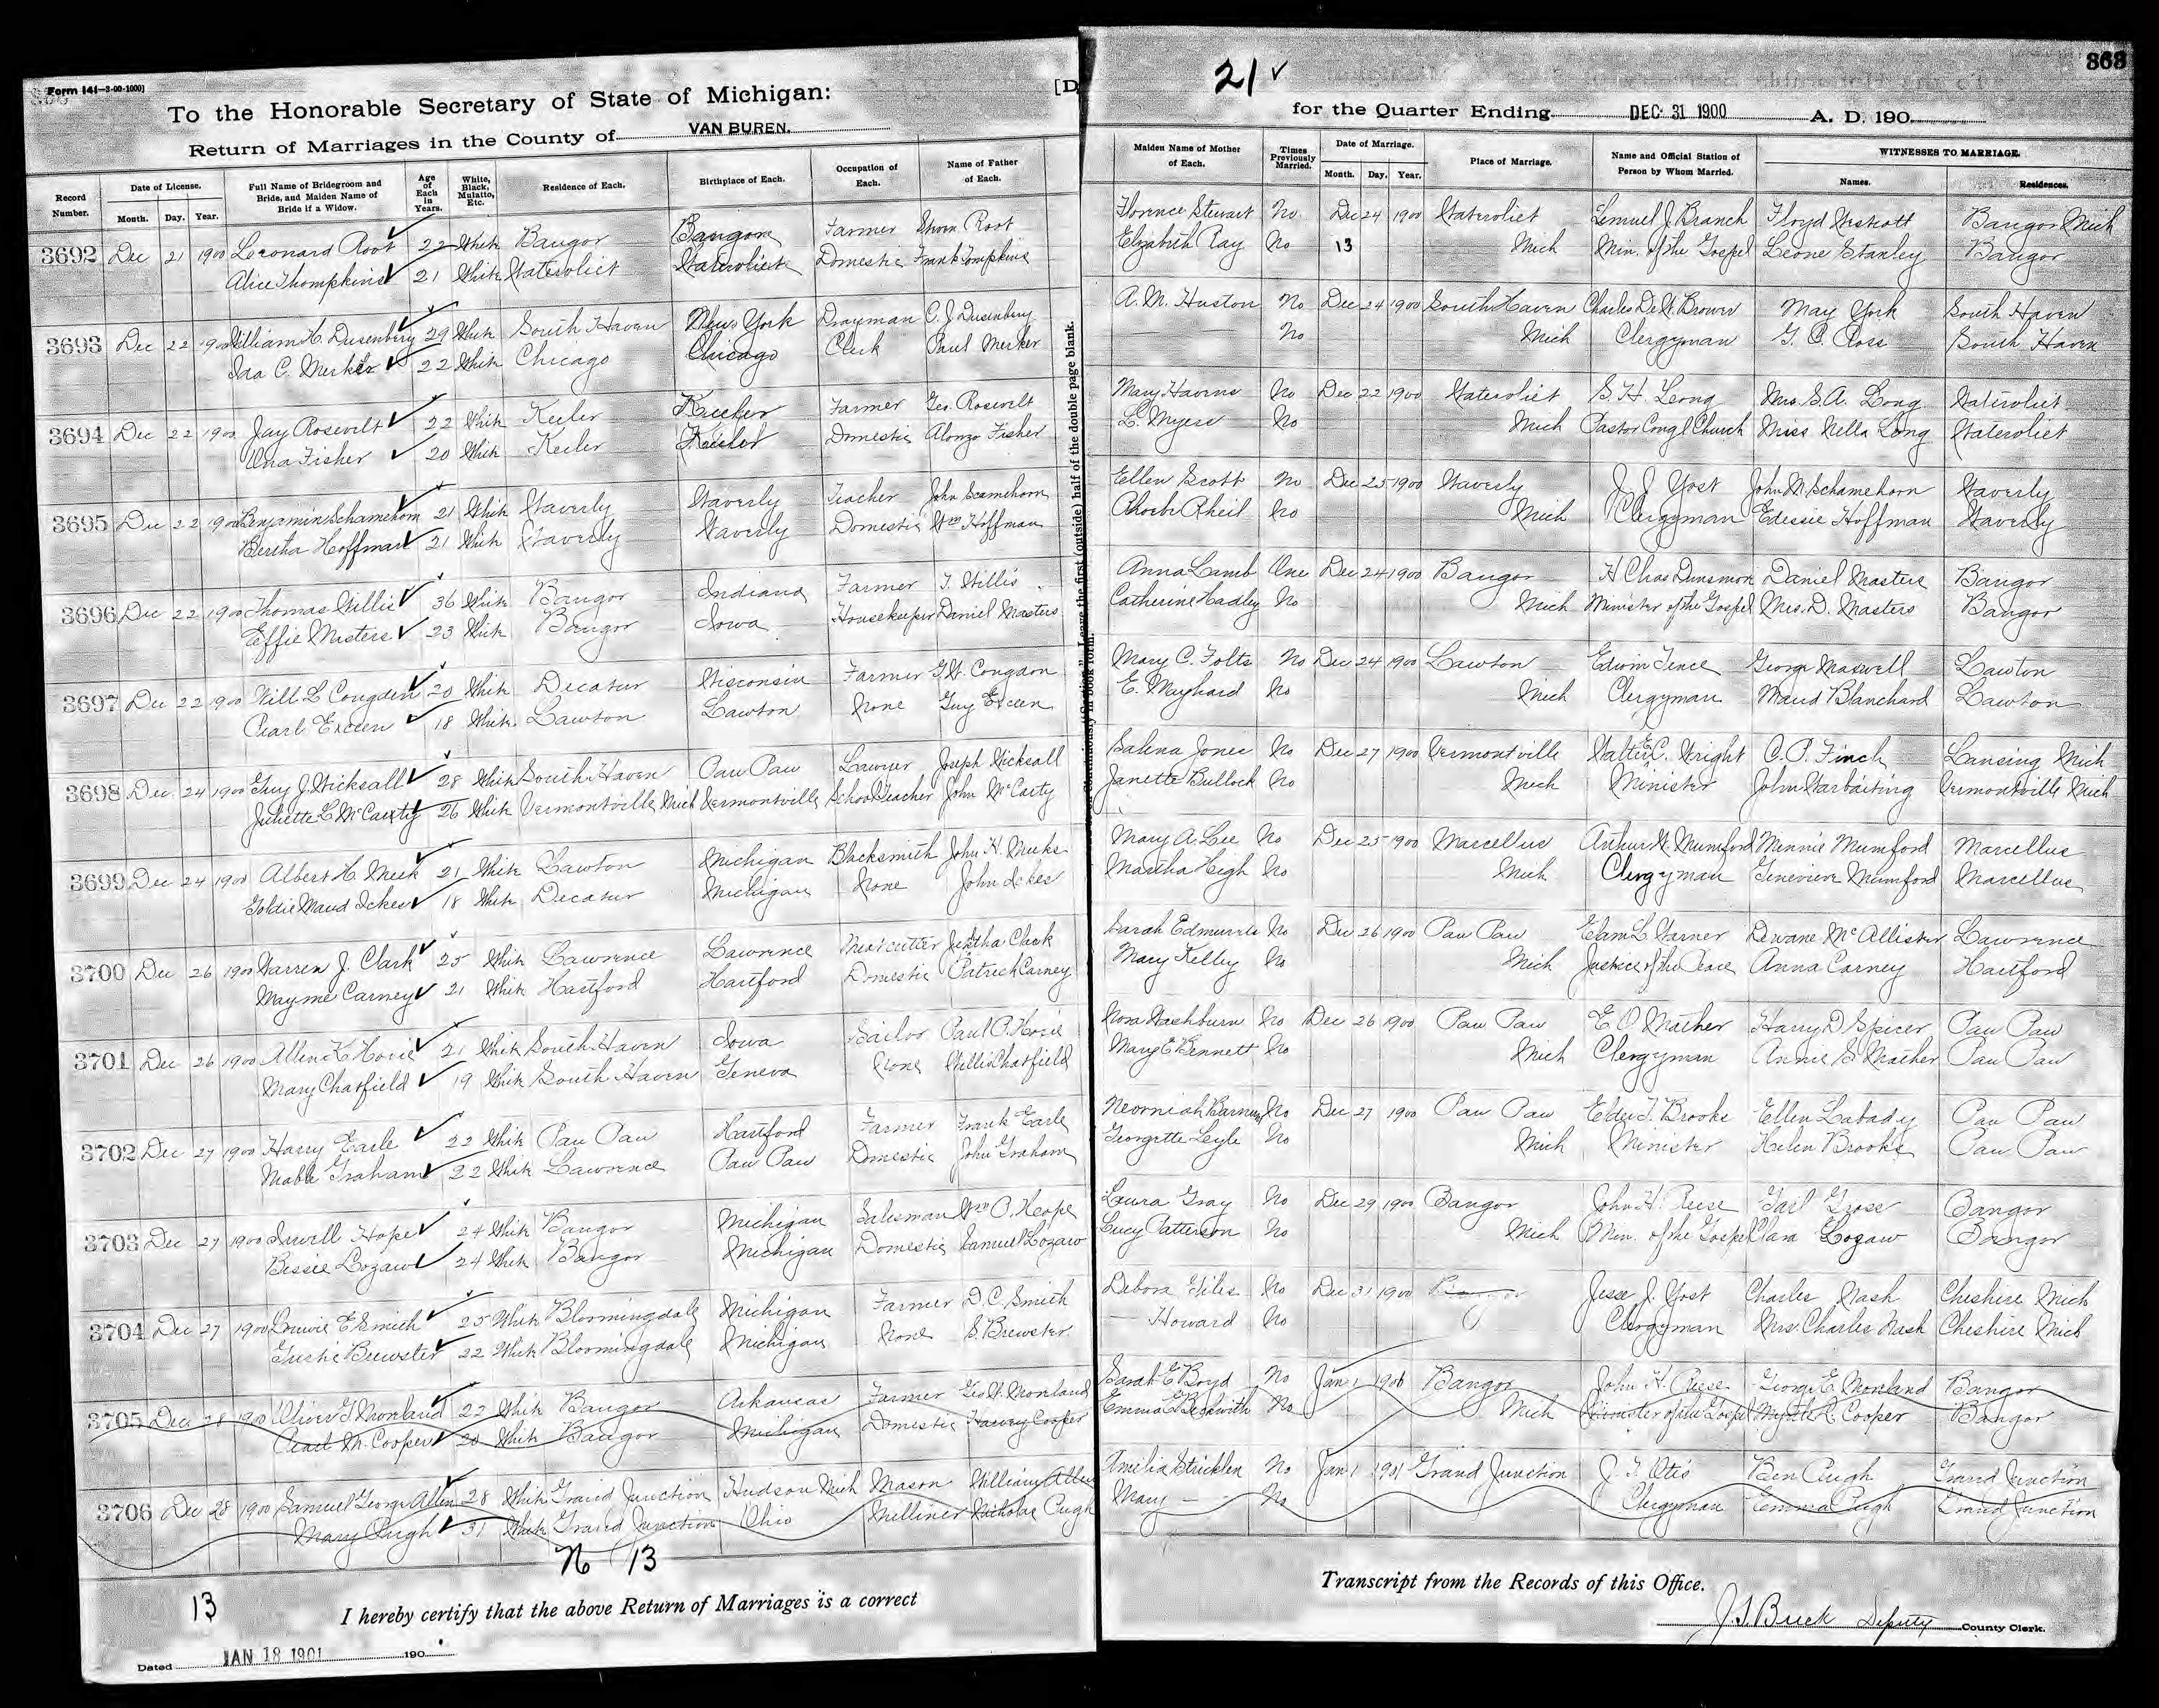 Form 141-3-00-1000]
To the Honorable Secretary of State of Michigan:
[D
Return of Marriages in the County of VAN BUREN.
Record Number. Date of License. Month. Day. Year. Full Name of Bridegroom and Bride, and Maiden Name of Bride if a Widow. Age of Each in Years. White, Black, Mulatto, Etc. Residence of Each. Birthplace of Each. Occupation of Each. Name of Father of Each.
3692 Dec 21 1900 Leonard Root 22 White Bangor Bangor Farmer Root
Alice Thompkins 21 White Watervliet Watervliet Domestic Frank Tompkins
3693 Dec 22 1900 William H. Dusenbery 29 White South Haven New York Drayman C. J. Dusenbery
Ida C. Merker 22 White Chicago Chicago Clerk Paul Merker
3694 Dec 22 1900 Jay Rosevelt 22 White Keeler Keeler Farmer Geo. Rosevelt
Una Fisher 20 White Keeler Keeler Domestic Alonzo Fisher
3695 Dec 22 1900 Benjamin Schamehorn 21 White Waverly Waverly Teacher John Scamehorn
Bertha Hoffman 21 White Waverly Waverly Domestic Wm Hoffman
3696 Dec 22 1900 Thomas Willis 36 White Bangor Indiana Farmer T. Willis
Effie Masters 23 White Bangor Iowa Housekeeper Daniel Masters
3697 Dec 22 1900 Will L Congden 20 White Decatur Wisconsin Farmer G. W. Congdon
Pearl Exceen 18 White Lawton Lawton None Guy Exceen
3698 Dec 24 1900 Guy J. Wicksall 28 White South Haven Paw Paw Lawyer Joseph Wicksall
Juliette L McCarty 26 White Vermontville, Mich Vermontville School Teacher John McCarty
3699 Dec 24 1900 Albert H. Meek 21 White Lawton Michigan Blacksmith John H. Meeks
Goldie Maud Ickes 18 White Decatur Michigan None John Ickes
3700 Dec 26 1900 Warren J. Clark 25 White Lawrence Lawrence Meat cutter Jeptha Clark
Mayme Carney 21 White Hartford Hartford Domestic Patrick Carney
3701 Dec 26 1900 Allen K. Hosie 21 White South Haven Iowa Sailor Paul P. Hosie
Mary Chatfield 19 White South Haven Geneva None Willis Chatfield
3702 Dec 27 1900 Harry Earle 22 White Paw Paw Hartford Farmer Frank Earle
Mable Graham 22 White Lawrence Paw Paw Domestic John Graham
3703 Dec 27 1900 Hope 24 White Bangor Michigan Salesman Wm O. Hope
Bessie Lozaw 24 White Bangor Michigan Domestic Samuel Lozaw
3704 Dec 27 1900 Lonnie E Smith 25 White Bloomingdale Michigan Farmer D. C. Smith
Brewster 22 White Bloomingdale Michigan None S. Brewster
3705 Dec 28 1900 Oliver G Monland 22 White Bangor Arkansas Farmer Geo W. Monland
Pearl M. Cooper 20 White Bangor Michigan Domestic Harvey Cooper
3706 Dec 28 1900 Samuel George Allen 28 White Grand Junction Hudson Mich Mason William Allen
Mary Pugh 31 White Grand Junction Ohio Milliner Nicholas Pugh
N 13
13
I hereby certify that the above Return of Marriages is a correct
Dated JAN 18 1901 190
21 ✓
363
for the Quarter Ending DEC 31 1900 A. D. 190
Maiden Name of Mother of Each. Times Previously Married. Date of Marriage. Month. Day. Year. Place of Marriage. Name and Official Station of Person by Whom Married. WITNESSES TO MARRIAGE. Names. Residences.
Florence Stewart No Dec 24 1900 Watervliet Lemuel J. Branch Floyd Bangor Mich
Elizabeth Ray No 13 Mich Min. of the Gospel Leone Stanley Bangor
A. M. Huston No Dec 24 1900 South Haven Charles De W. Brower May York South Haven
No Mich Clergyman G. C. Ross South Haven
Mary Havens No Dec 22 1900 Watervliet S. H. Long Mrs. S. A. Long Watervliet
L. Myers No Mich Pastor Congl Church Miss Nella Long Watervliet
Ellen Scott No Dec 25 1900 Waverly J. J. Yost John W Schamehorn Waverly
Phoebe Rheil No Mich Clergyman Edessie Hoffman Waverly
Anna Lamb One Dec 24 1900 Bangor H Chas Dunsmore Daniel Masters Bangor
Catherine Hadley No Mich Minister of the Gospel Mrs. D. Masters Bangor
Mary C. Folts No Dec 24 1900 Lawton Edwin Tence George Maxwell Lawton
E. Maynard No Mich Clergyman Maud Blanchard Lawton
Salena Jones No Dec 27 1900 Vermontville Walter E. C. Wright C. P. Finch Lansing Mich
Janette Bullock No Mich Minister John Warbaiting Vermontville Mich
Mary A. Lee No Dec 25 1900 Marcellus Arthur W. Mumford Minnie Mumford Marcellus
Martha High No Mich Clergyman Genevieve Mumford Marcellus
Sarah Edmunds No Dec 26 1900 Paw Paw Elam L Warner Dewane McAllister Lawrence
Mary Kelley No Mich Justice of the Peace Anna Carney Hartford
Nora Washburn No Dec 26 1900 Paw Paw E O Mather Harry D Spicer Paw Paw
Mary E Bennett No Mich Clergyman Annie S Mather Paw Paw
Neomiah Barnum No Dec 27 1900 Paw Paw Elder T. Brooks Ellen Labady Paw Paw
Georgette Leyle No Mich Minister Helen Brooks Paw Paw
Laura Gray No Dec 29 1900 Bangor John H. Reese Gail Grose Bangor
Lucy Patterson No Mich Min. of the Gospel Clara Lozaw Bangor
Debora Giles No Dec 31 1900 Jesse J. Yost Charles Nash Cheshire Mich
— Howard No Clergyman Mrs. Charles Nash Cheshire Mich
Sarah E Boyd No Jan 1 1901 Bangor John H. Reese George E. Monland Bangor
Emma E Beckwith No Mich Minister of the Gospel Myrtle R. Cooper Bangor
Amelia Stricklen No Jan 1 1901 Grand Junction J. T. Otis Ben Pugh Grand Junction
Mary — No Clergyman Emma Pugh Grand Junction
Transcript from the Records of this Office.
J. S. Buck Deputy County Clerk.